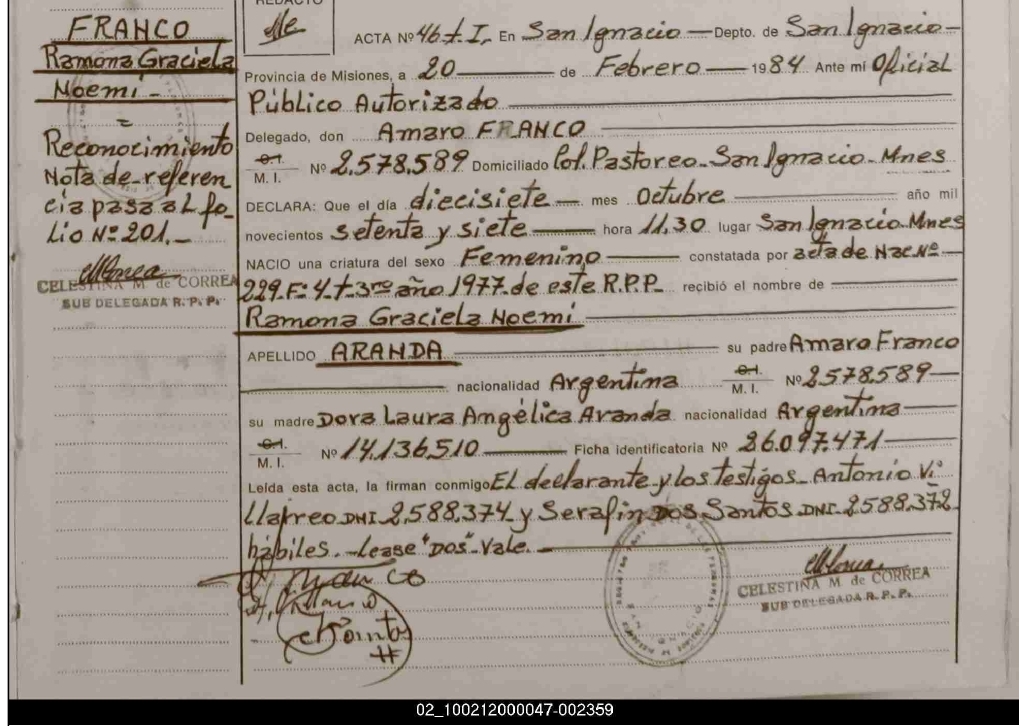 REDACTO
FRANCO
Ramona Graciela
Noemí -
=
Reconocimiento
Nota de referen
cia pasa al fo_
Lio Nº 201._
CELESTINA M de CORREA
SUB DELEGADA R. P. P.
ACTA Nº 46 t. I. En San Ignacio — Depto. de San Ignacio —
Provincia de Misiones, a 20 — de Febrero — 1984 Ante mí Oficial
Público Autorizado
Delegado, don Amaro FRANCO
M. I. Nº 2.578.589 Domiciliado Col. Pastoreo - San Ignacio - Mnes
DECLARA: Que el día diecisiete — mes Octubre — año mil
novecientos setenta y siete — hora 11,30 lugar San Ignacio - Mnes
NACIO una criatura del sexo Femenino — constatada por acta de Nac. Nº
229. Fº 4. t. 3ro año 1977 de este R.P.P. recibió el nombre de —
Ramona Graciela Noemí —
APELLIDO ARANDA — su padre Amaro Franco
— nacionalidad Argentina M. I. Nº 2578.589 —
su madre Dora Laura Angélica Aranda nacionalidad Argentina —
M. I. Nº 14.136.510 — Ficha identificatoria Nº 26.097.471 —
Leída esta acta, la firman conmigo El declarante y los testigos Antonio Vi
llarreo DNI 2.588.374 y Serafin Dos Santos DNI 2588.372
hábiles. - Lease "Dos" Vale. -
CELESTINA M de CORREA
SUB DELEGADA R. P. P.
02_100212000047-002359